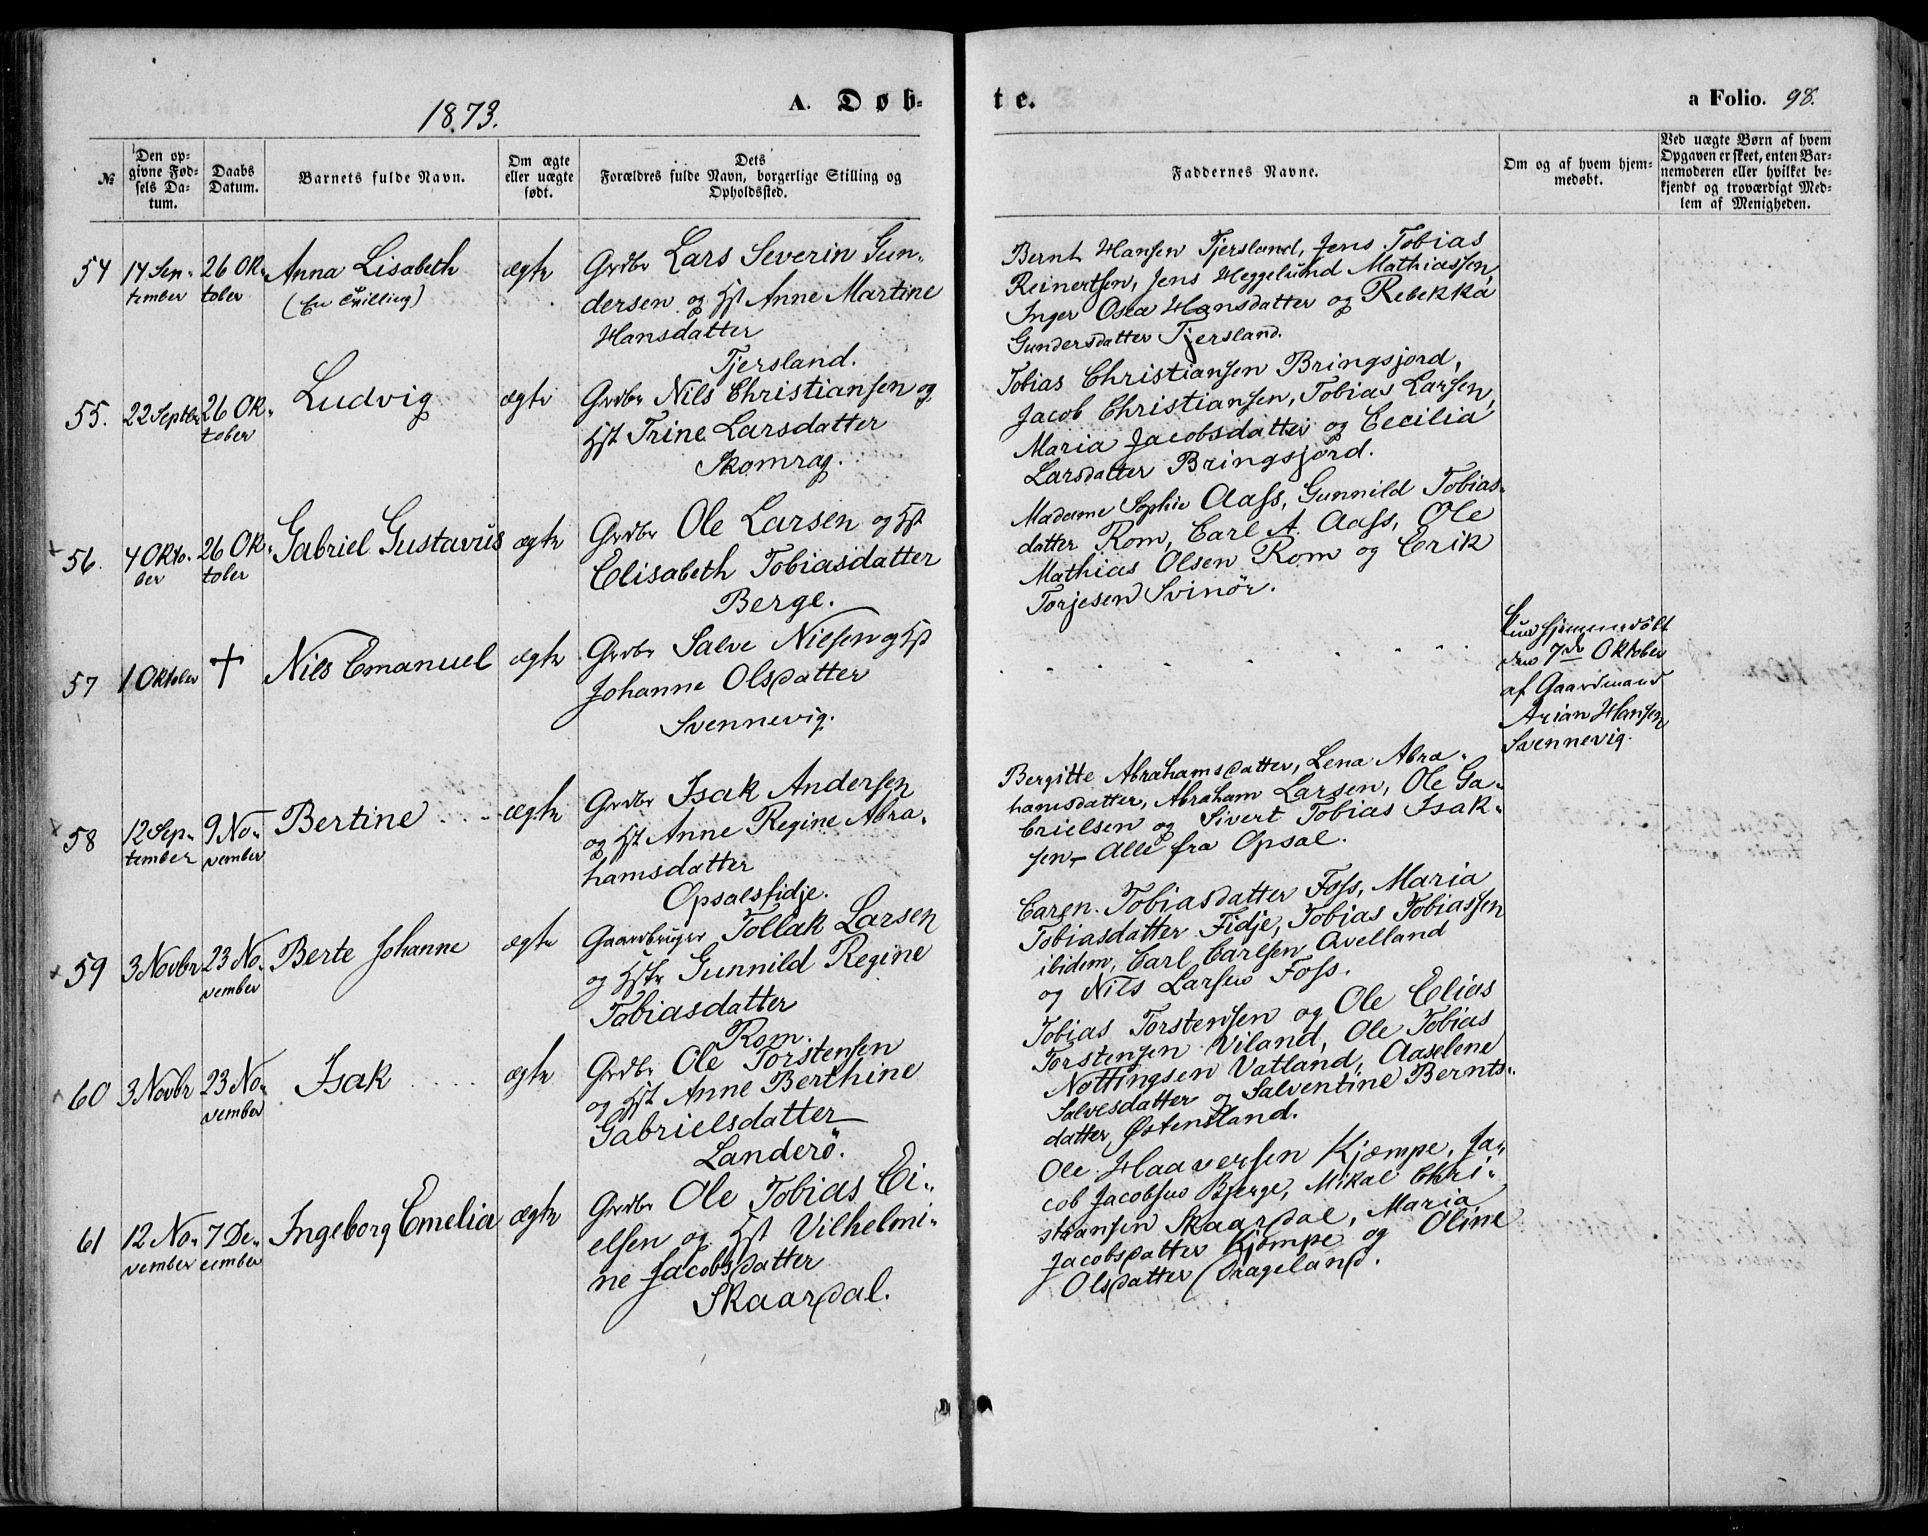 1873.
A. Døb-
te.
a Folio. 98.
№
Den op-
givne Fød-
sels Da-
tum.
Daabs
Datum.
Barnets fulde Navn.
Om ægte
eller uægte
født.
Dets
Forældres fulde Navn, borgerlige Stilling og
Opholdssted.
Faddernes Navne.
Om og af hvem hjem-
medøbt.
Ved uægte Børn af hvem
Opgaven er skeet, enten Bar-
nemoderen eller hvilket be-
kjendt og troværdigt Med-
lem af Menigheden.
54
14 Sep-
tember
26 Ok-
tober
Anna Lisabeth
(En Tvilling)
ægte
Grdbr Lars Severin Gun-
dersen og Hst Anne Martine
Hansdatter
Tjersland.
Bernt Hansen Tjersland, Jens Tobias
Reinertsen, Jens Heggelund Mathiassen,
Inger Osea Hansdatter og Rebekka
Gundersdatter Tjersland.
55.
22 Septbr
26 Ok-
tober
Ludvig
ægte
Grdbr Nils Christiansen og
Hst Trine Larsdatter
Skomrag.
Tobias Christiansen Bringsjord,
Jacob Christiansen, Tobias Larsen,
Maria Jacobsdatter og Cecilia
Larsdatter Bringsjord.
56.
4 Okto-
ber
26 Ok-
tober
Gabriel Gustavus
ægte
Grdbr Ole Larsen og Hst
Elisabeth Tobiasdatter
Berge.
Madame Sophie Aass, Gunnild Tobias-
datter Rom, Carl A. Aass, Ole
Mathias Olsen Rom og Erik
Torjesen Svinör.
57
1 Oktober
†
Nils Emanuel
ægte
Grdbr Salve Nielsen og Hst
Johanne Olsdatter
Svennevig.
Kun hjemmedøbt
den 7de Oktober
af Gaardmand
Arian Hansen
Svennevig.
58
12 Sep-
tember
9 No-
vember
Bertine
ægte
Grdbr Isak Andersen
og Hst Anne Regine Abra-
hamsdatter
Opsalsfidje.
Bergitte Abrahamsdatter, Lena Abra-
hamsdatter, Abraham Larsen, Ole Ga-
brielsen og Sivert Tobias Isak-
sen, - Alle fra Opsal.
59
3 Novbr
23 No-
vember
Berte Johanne
ægte
Gaardbruger Tollak Larsen
og Hstr Gunnild Regine
Tobiasdatter
Rom.
Caren Tobiasdatter Foss, Maria
Tobiasdatter Fidje, Tobias Tobiassen
ibidem, Carl Carlsen Avelland
og Nils Larsen Foss.
60
3 Novbr
23 No-
vember
Isak
ægte
Grdbr Ole Torstensen
og Hst Anne Berthine
Gabrielsdatter
Landerö.
Tobias Torstensen og Ole Elias
Torstensen Viland, Ole Tobias
Nottingsen Vatland, Aaselene
Salvesdatter og Salventine Bernts-
datter, Østensland.
61
12 No-
vember
7 De-
cember
Ingeborg Emelia
ægte
Grdbr Ole Tobias Ei-
elsen og Hst Vilhelmi-
ne Jacobsdatter
Skaardal.
Ole Haaversen Kjæmpe, Ja-
cob Jacobsen Bjerge, Mikal Chri-
stiansen Skaardal, Maria
Jacobsdatter Kjæmpe og Oline
Olsdatter Drageland.